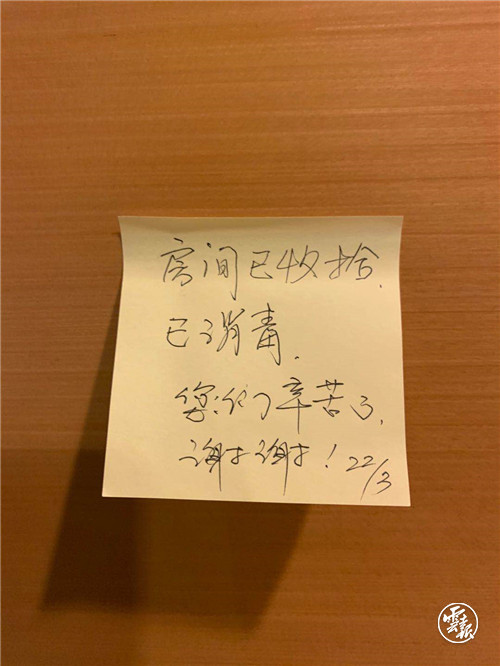 房间已收拾.
已消毒.
您们辛苦了,
谢谢! 22/3